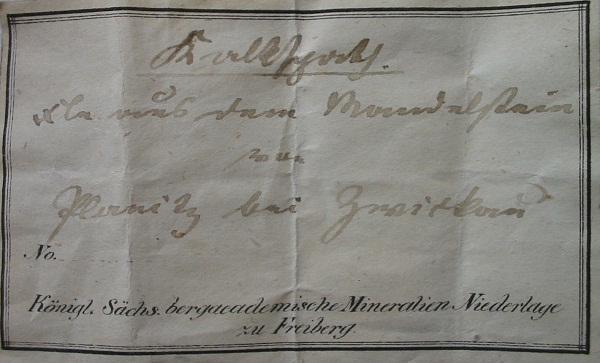 Kalkspath.
aus dem Mandelstein
von
Planitz bei Zwickau
No.
Königl. Sächs. bergacademische Mineralien Niederlage
zu Freiberg.